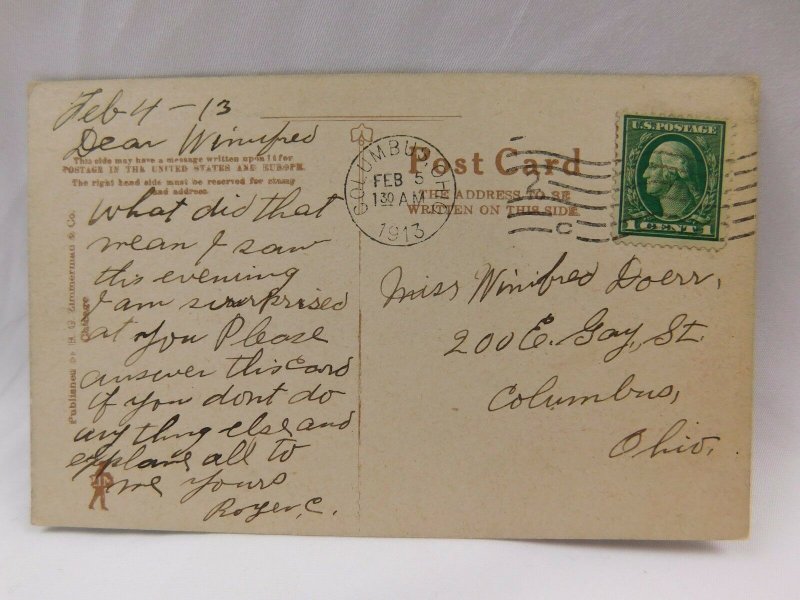 Feb 4 - 13
Dear Winifred
This side may have a message written upon it for
POSTAGE IN THE UNITED STATES AND EUROPE.
The right hand side must be reserved for stamp
and address.
What did that
mean I saw
this evening
I am surprised
at you Please
answer this card
if you dont do
any thing else and
explane all to
me yours
Roger, C.
Published by H. G. Zimmerman & Co.
Chicago
COLUMBUS, OHIO
FEB 5
1 30 AM
1913
Post Card
THE ADDRESS TO BE
WRITTEN ON THIS SIDE.
U.S. POSTAGE
1 CENT 1
Miss Winifred Doerr,
200 E. Gay, St.
Columbus,
Ohio.